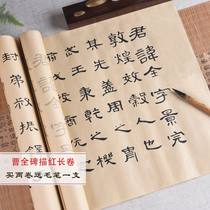 君諱全字景完
敦煌效穀人也
其先蓋周之胄
武王秉乾之機
封弟叔振鐸
曹全碑描红长卷
买两卷送毛笔一支